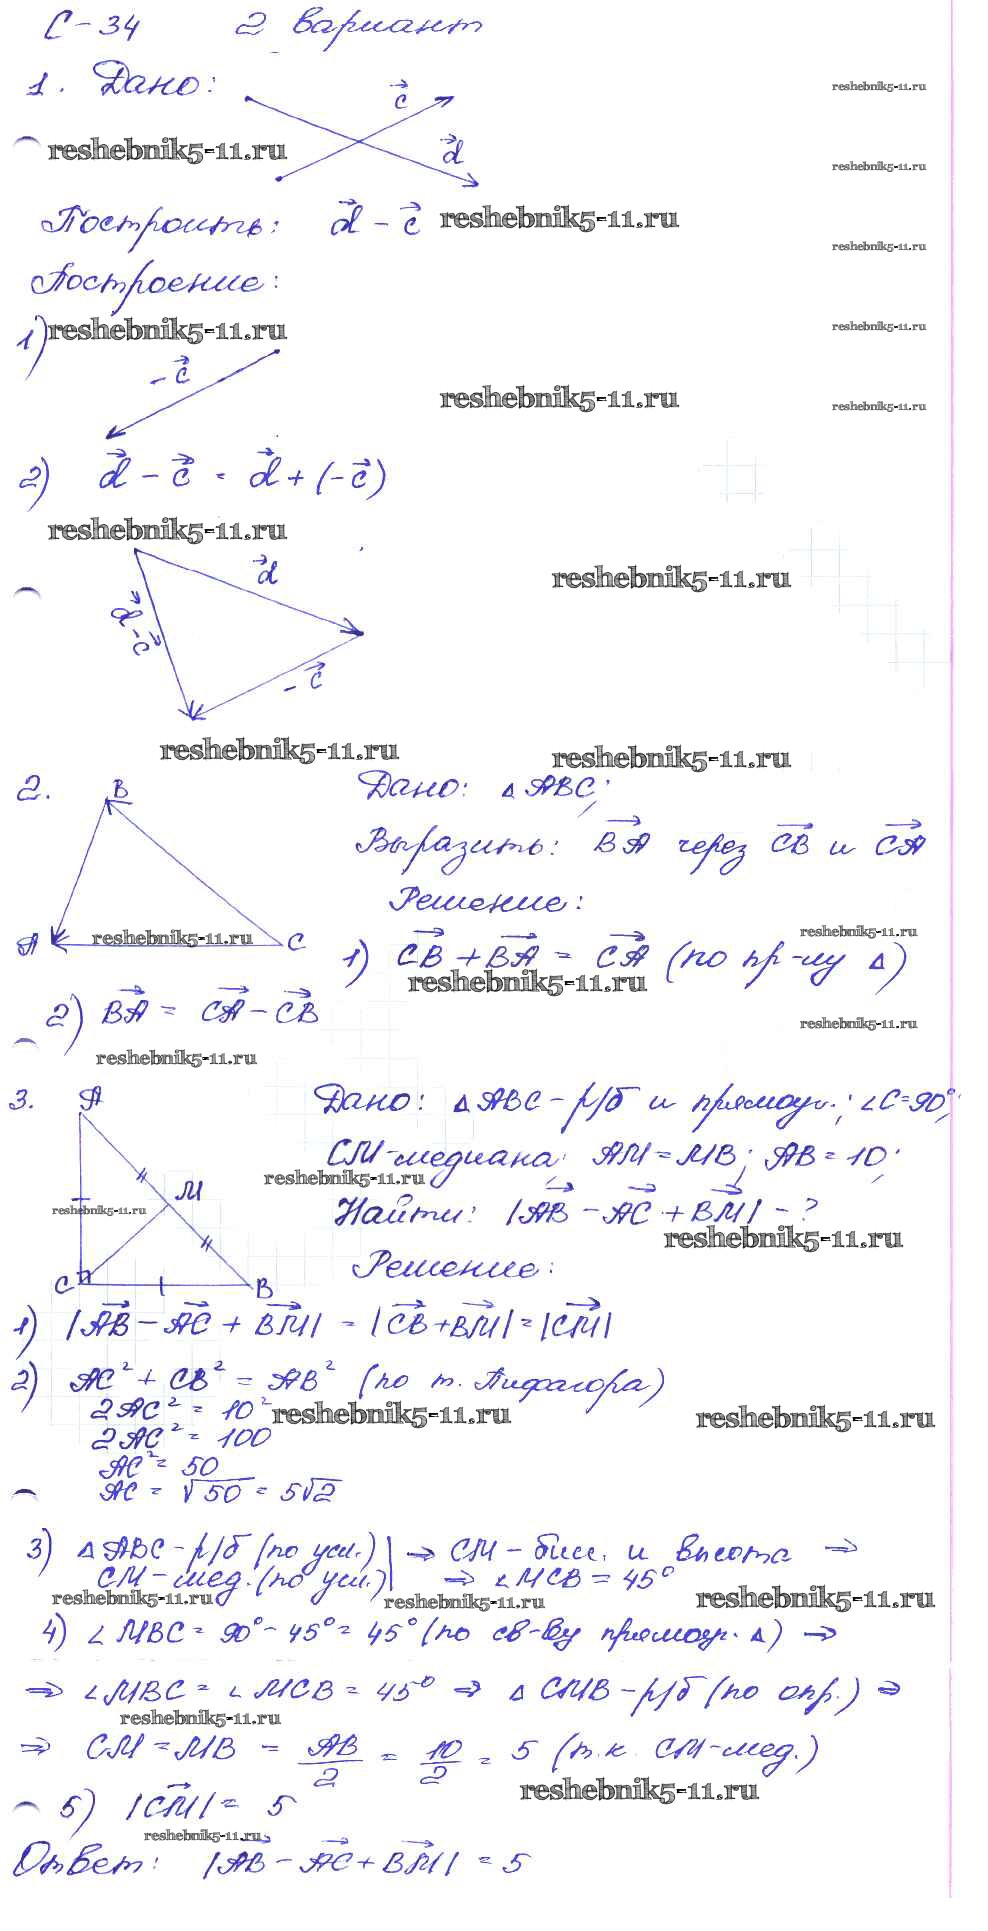 С-34 2 вариант
1. Дано:
c
reshebnik5-11.ru
reshebnik5-11.ru
d
reshebnik5-11.ru
Построить: d - c
reshebnik5-11.ru
reshebnik5-11.ru
Построение:
1)
reshebnik5-11.ru
reshebnik5-11.ru
- c
reshebnik5-11.ru
reshebnik5-11.ru
2) d - c = d + (-c)
reshebnik5-11.ru
d
reshebnik5-11.ru
d - c
- c
reshebnik5-11.ru
reshebnik5-11.ru
2. B
Дано: △ABC;
Выразить: BA через CB и CA
Решение:
A
C
reshebnik5-11.ru
reshebnik5-11.ru
1) CB + BA = CA (по пр-лу △)
reshebnik5-11.ru
2) BA = CA - CB
reshebnik5-11.ru
reshebnik5-11.ru
3. A
Дано: △ABC - р/б и прямоуг.; ∠C=90°;
CM-медиана; AM=MB; AB=10;
reshebnik5-11.ru
M
reshebnik5-11.ru
Найти: |AB - AC + BM| - ?
reshebnik5-11.ru
C
B
Решение:
1) |AB - AC + BM| = |CB + BM| = |CM|
2) AC² + CB² = AB² (по т. Пифагора)
2AC² = 10²
reshebnik5-11.ru
reshebnik5-11.ru
2AC² = 100
AC² = 50
AC = √50 = 5√2
3) △ABC - р/б (по усл.) | ⇒ CM - бисс. и высота ⇒
CM - мед. (по усл.) | ⇒ ∠MCB = 45°
reshebnik5-11.ru
reshebnik5-11.ru
reshebnik5-11.ru
4) ∠MBC = 90° - 45° = 45° (по св-ву прямоуг. △) ⇒
⇒ ∠MBC = ∠MCB = 45° ⇒ △CMB - р/б (по опр.) ⇒
reshebnik5-11.ru
⇒ CM = MB = AB/2 = 10/2 = 5 (т.к. CM-мед.)
reshebnik5-11.ru
5) |CM| = 5
reshebnik5-11.ru
Ответ: |AB - AC + BM| = 5